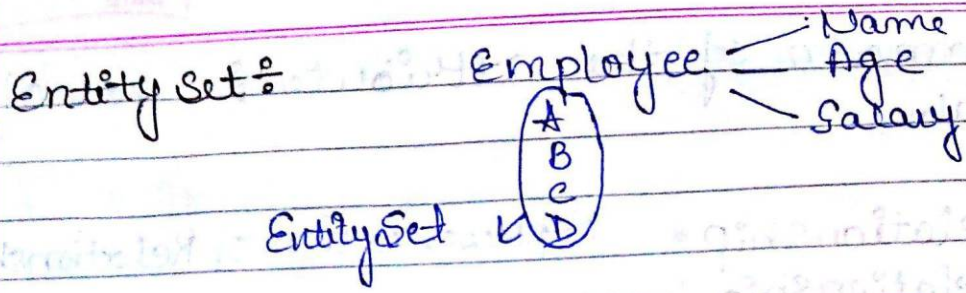 Entity Set ÷ Employee Name
Age
Salary
A
B
C
Entity Set D